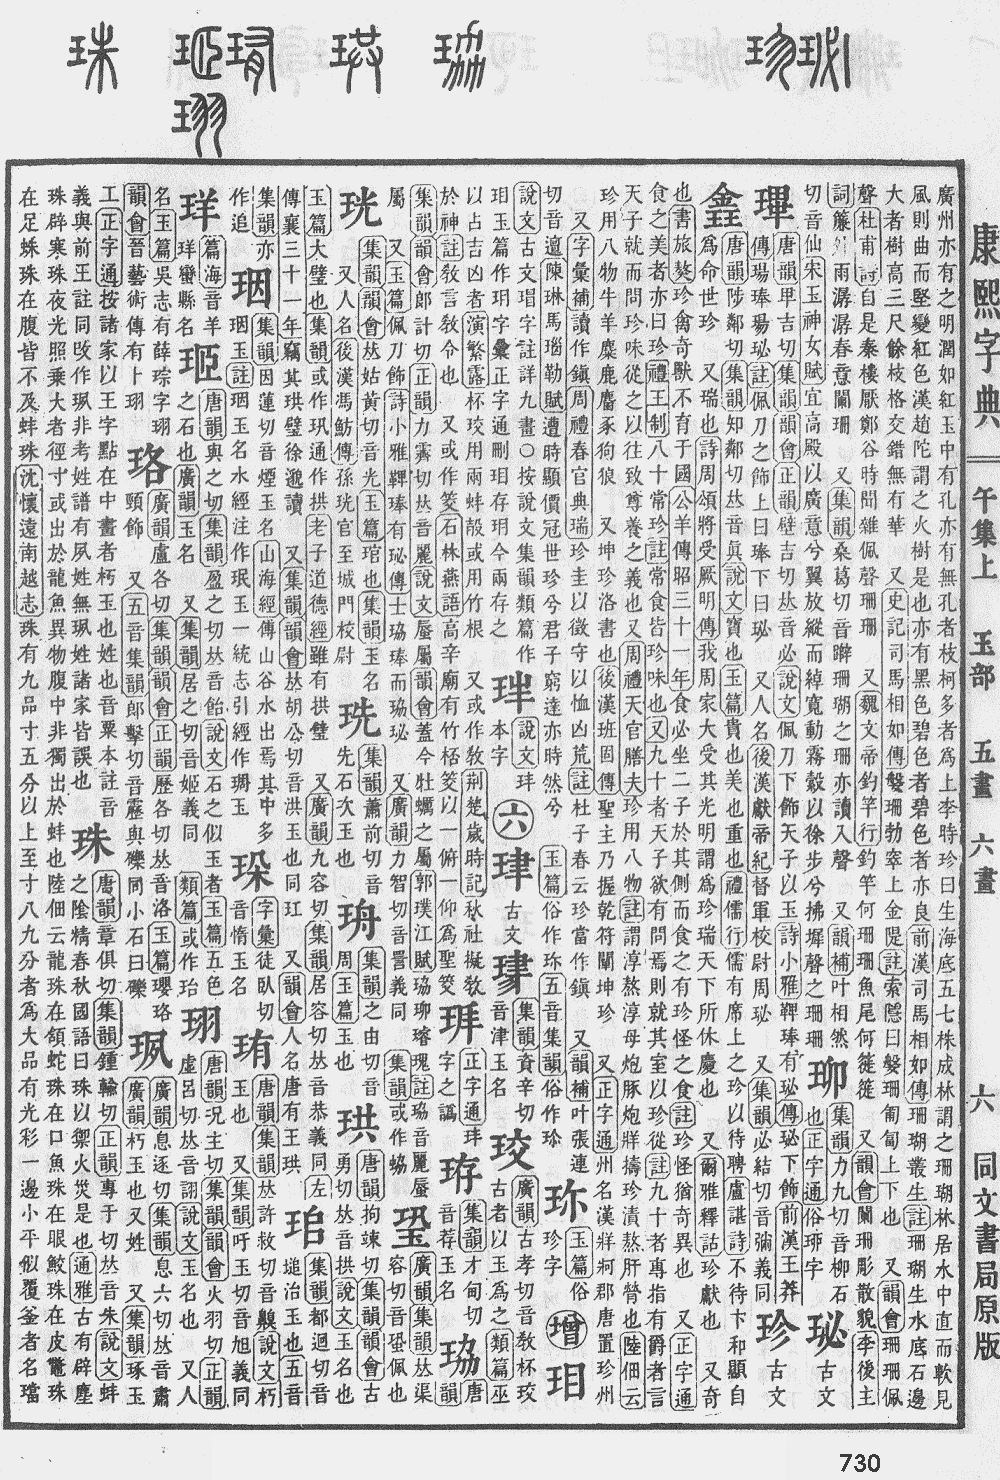 康熙字典 午集上 玉部 五畫 六畫 六 同文書局原版
廣州亦有之明潤如紅玉中有孔亦有無孔者枝柯多者爲上李時珍曰生海底五七株成林謂之珊瑚林居水中直而軟見
風則曲而堅變紅色漢趙陀謂之火樹是也亦有黑色碧色者碧色者亦良前漢司馬相如傳珊瑚叢生註珊瑚生水底石邊
大者樹高三尺餘枝格交錯無有華 又史記司馬相如傳媻珊勃窣上金隄註索隱曰媻珊匍匐上下也 又韻會珊珊佩
聲杜甫詩自是秦樓厭鄭谷時聞雜佩聲珊珊 又魏文帝釣竿行釣竿何珊珊魚尾何簁簁 又韻會闌珊彫散貌李後主
詞簾外雨潺潺春意闌珊 又集韻桑葛切音躃珊瑚之珊亦讀入聲 又韻補叶相然
切音仙宋玉神女賦宜高殿以廣意兮翼放縱而綽寬動霧縠以徐步兮拂墀聲之珊珊 珋 集韻力九切音柳石
也正字通俗珋字 珌 古文
唐韻卑吉切集韻韻會正韻壁吉切𠀤音必說文佩刀下飾天子以玉詩小雅鞞琫有珌傳珌下飾前漢王莽
傳瑒琫瑒珌註佩刀之飾上曰琫下曰珌 又人名後漢獻帝紀督軍校尉周珌 又集韻必結切音彌義同 珍 古文
唐韻陟鄰切集韻知鄰切𠀤音眞說文寶也玉篇貴也美也重也禮儒行儒有席上之珍以待聘盧諶詩不待卞和顯自
爲命世珍 又瑞也詩周頌將受厥明傳我周家大受其光明謂爲珍瑞天下所休慶也 又爾雅釋詁珍獻也 又奇
也書旅獒珍禽奇獸不育于國公羊傳昭三十一年食必坐二子於其側而食之有珍怪之食註珍怪猶奇異也 又正字通
食之美者亦曰珍禮王制八十常珍註常食皆珍味也又九十者天子欲有問焉則就其室以珍從註九十者專指有爵者言
天子就而問珍味從之以往致尊養之義也又周禮天官膳夫珍用八物註謂淳熬淳母炮豚炮牂擣珍漬熬肝膋也陸佃云
珍用八物牛羊麋鹿麕豕狗狼 又坤珍洛書也後漢班固傳聖主乃握乾符闡坤珍 又正字通州名漢牂牁郡唐置珍州
又字彙補讀作鎭周禮春官典瑞珍圭以徵守以恤凶荒註杜子春云珍當作鎭 又韻補叶張連
切音邅陳琳馬瑙勒賦遭時顯價冠世珍兮君子窮達亦時然兮 玉篇俗作珎五音集韻俗作珍 珎 玉篇俗珍字 增 玥
說文古文瑁字註詳九畫○按說文集韻類篇作
玥玉篇作玥字彙正字通刪玥存玥今兩存之 㺿 說文玤本字 六 珒 古文 集韻資辛切音津玉名 珓 廣韻古孝切音敎杯珓古者以玉爲之類篇巫
以占吉凶者演繁露杯珓用兩蚌殼或用竹根 又或作敎荆楚歲時記秋社擬敎
於神註敎言敎令也 又或作筊石林燕語高辛廟有竹桮筊以一俯一仰爲聖筊 正字通玤字之譌 珔 集韻才甸切音荐玉名 珕 唐韻
集韻韻會郞計切正韻力霽切𠀤音麗說文蜃屬韻會蓋今牡蠣之屬郭璞江賦珕珋璿瑰註珕音麗蜃
屬 又玉篇佩刀飾詩小雅鞞琫有珌傳士珕琫而珕珌 又廣韻力智切音詈義同 集韻或作蛠 廣韻集韻𠀤渠容切音蛩佩也
珖 集韻韻會𠀤姑黃切音光玉篇琯也集韻玉名
又人名後漢馮魴傳孫珖官至城門校尉 珗 集韻蕭前切音先石次玉 珘 集韻之由切音周玉篇玉也 珙 唐韻拘竦切集韻韻會古勇切𠀤音拱說文玉名也
玉篇大璧也集韻或作㺬通作拱老子道德經雖有拱璧 又廣韻九容切集韻居容切𠀤音恭義同左
傳襄三十一年竊其拱璧徐邈讀 又集韻韻會𠀤胡公切音洪玉也同玒 又韻會人名唐有王珙 珆 集韻都迴切音塠治玉也五音
集韻亦作追 珚 集韻因蓮切音煙玉名山海經傳山谷水出焉其中多珚玉註珚玉名水經注作珉玉一統志引經作琱玉 珢
珛 玉也 又集韻吁玉切音旭義同
珜 篇海音羊羊蠻縣名 𤤺 珝 唐韻況主切集韻韻會火羽切正韻虛呂切𠀤音詡說文玉名也 又人
名玉篇吳志有薛琮字珝 珞 廣韻盧各切集韻韻會正韻歷各切𠀤音洛玉篇瓔珞
韻會晉藝術傳有卜珝 頸飾 又五音集韻郞擊切音靂與礫同小石曰礫 珟 廣韻息逐切集韻息六切𠀤音肅
廣韻朽玉也又姓 又集韻琢玉
工正字通按諸家以王字點在中畫者朽玉也姓也音粟本註音
義與前玉註同攺作玊非考姓譜有夙姓無玊姓諸家皆誤也 珠 唐韻章俱切集韻鍾輸切正韻專于切𠀤音朱說文蚌
之陰精春秋國語曰珠以禦火災是也通雅古有辟塵
珠辟寒珠夜光照乘大者徑寸或出於龍魚異物腹中非獨出於蚌也陸佃云龍珠在頷蛇珠在口魚珠在眼鮫珠在皮鼈珠
在足蛛珠在腹皆不及蚌珠沈懷遠南越志珠有九品寸五分以上至寸八九分者爲大品有光彩一邊小平似覆釜者名璫
730